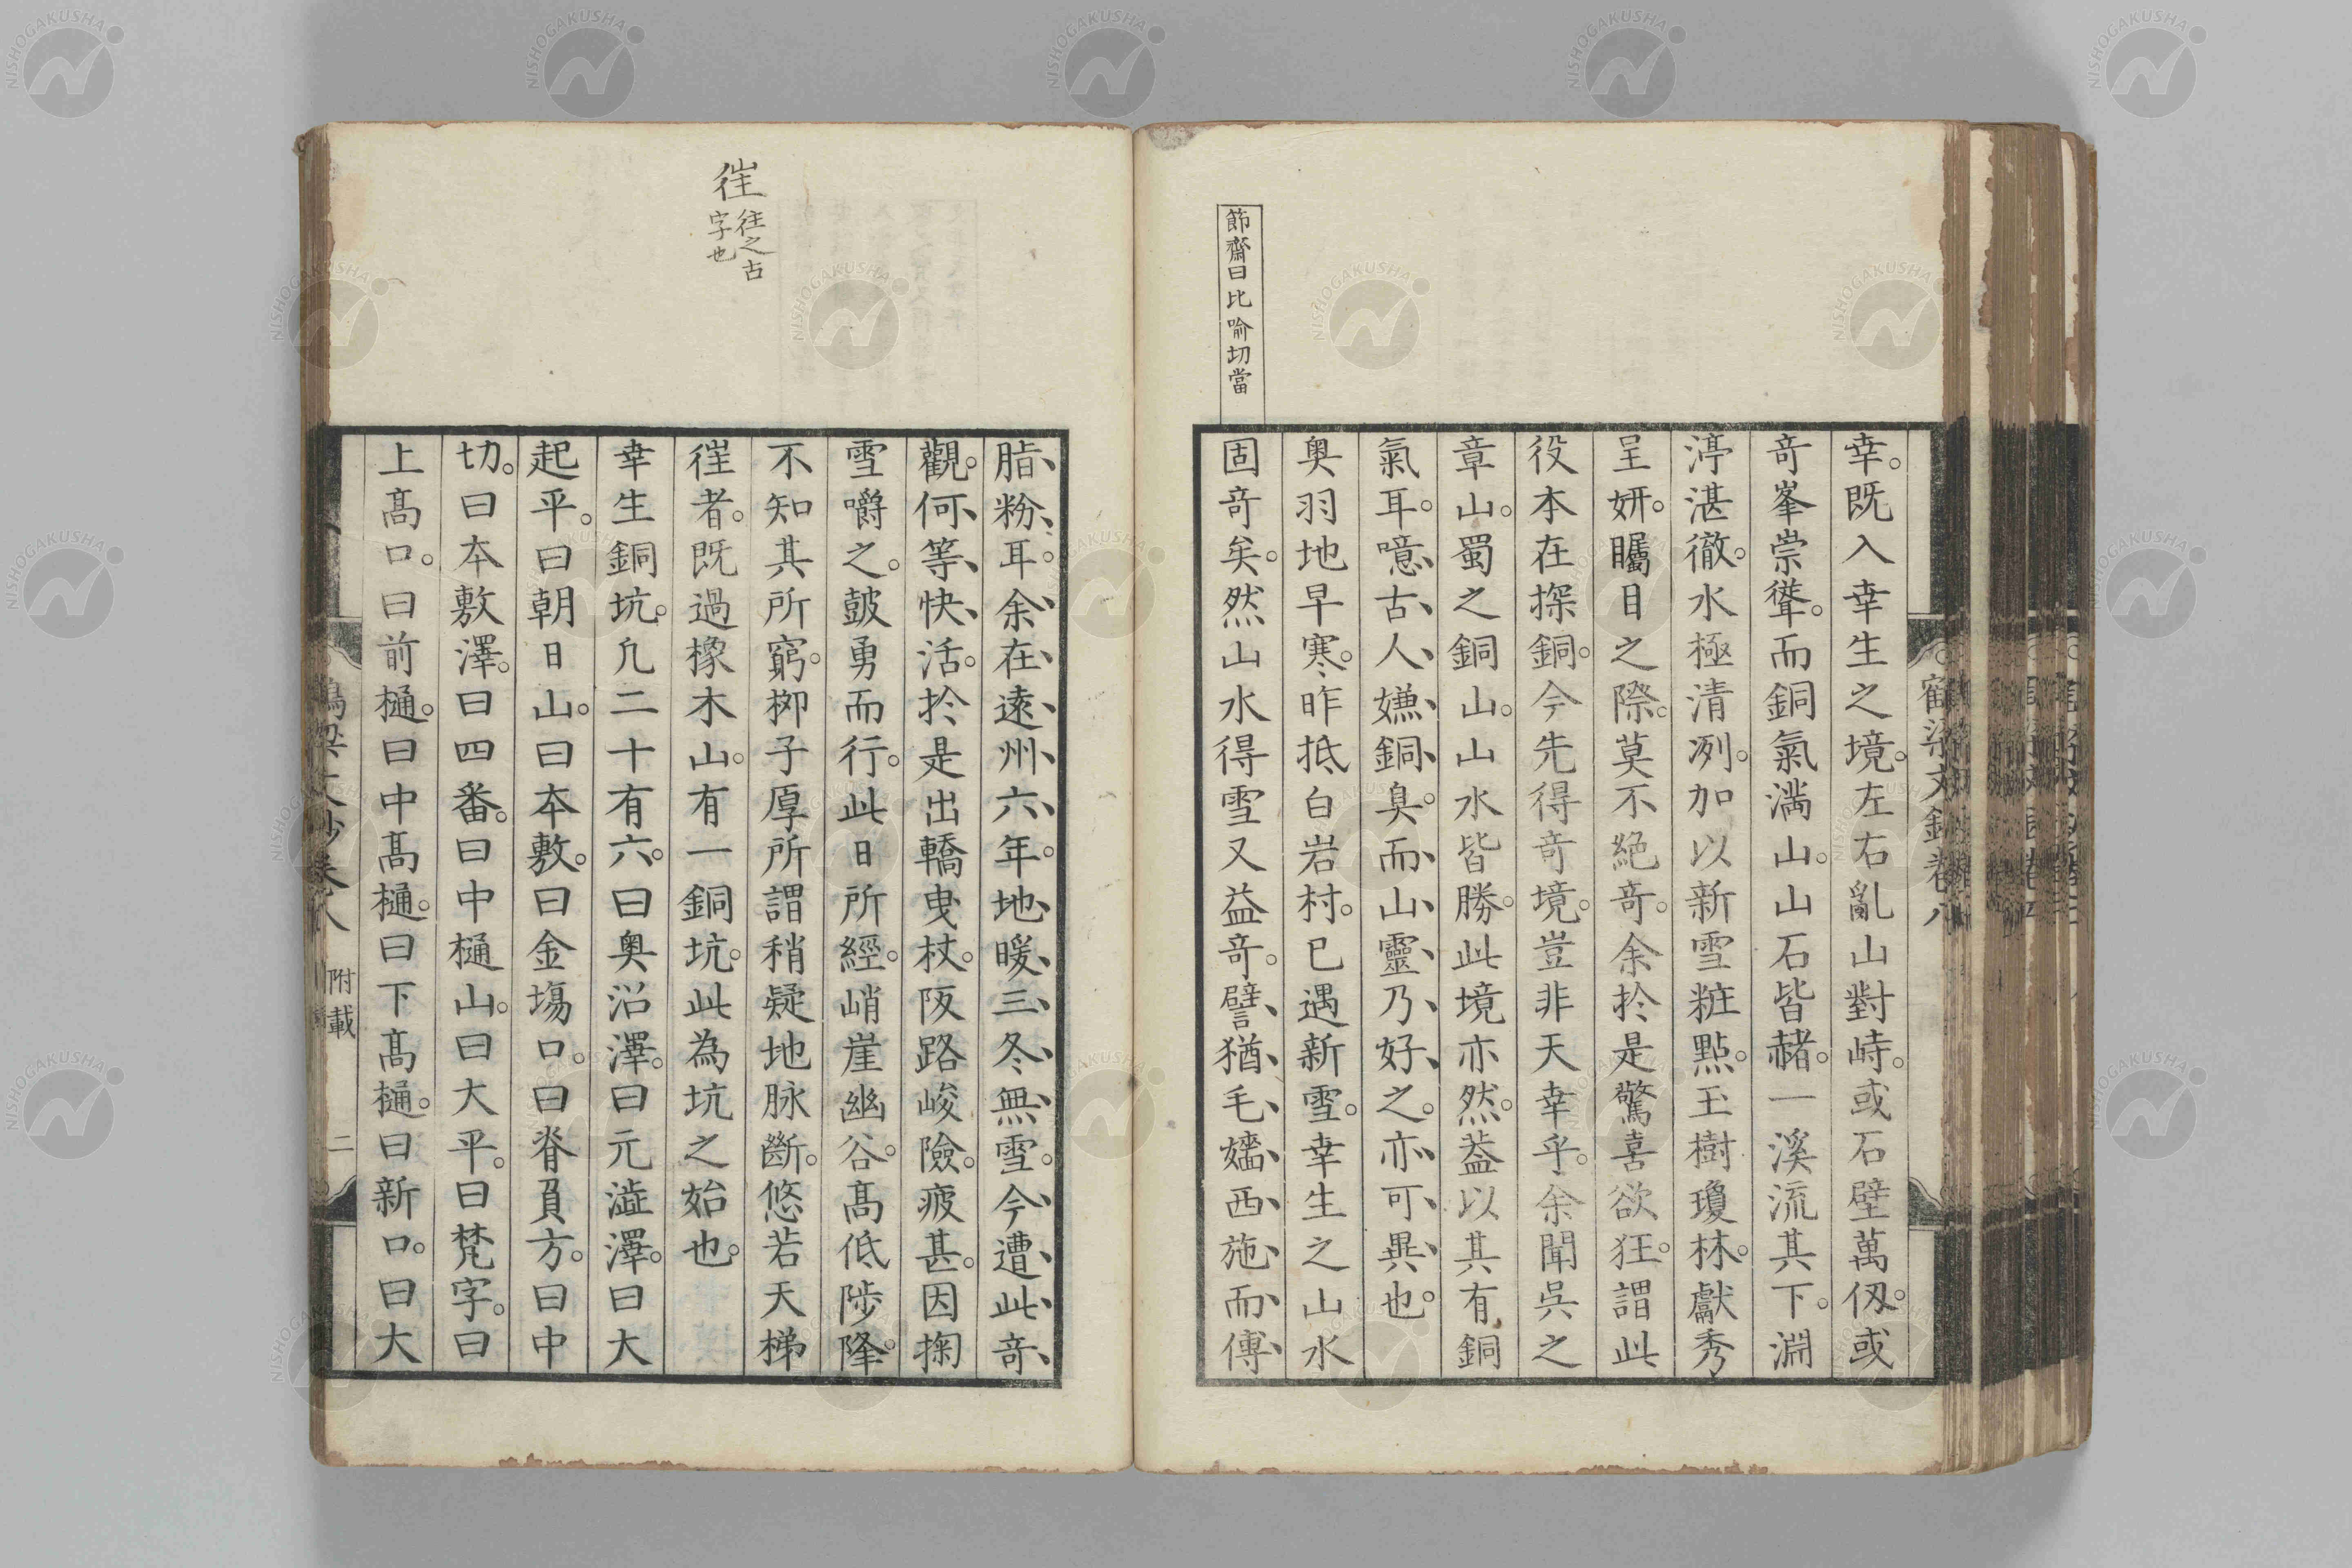 節齋曰比喻切當
幸。既入幸生之境。左右亂山對峙。或石壁萬仭。或
竒峯崇聳。而銅氣滿山。山石皆赭。一溪流其下。淵
渟湛徹。水極清冽。加以新雪粧點。玉樹瓊林。獻秀
呈妍。矚目之際。莫不絕竒。余扵是驚喜欲狂。謂此
役本在探銅。今先得竒境。豈非天幸乎。余聞吳之
章山。蜀之銅山。山水皆勝。此境亦然。葢以其有銅
氣耳。噫古人嫌銅臭。而山靈乃好之。亦可異也。
奥羽地早寒。昨抵白岩村。已遇新雪。幸生之山水
固竒矣。然山水得雪又益竒。譬猶毛嬙西施而傅
徃
往之古
字也
脂粉耳。余在遠州六年。地暖三冬無雪。今遭此竒
觀。何等快活。扵是出轎曳杖。阪路峻險。疲甚。因掬
雪嚼之。皷勇而行。此日所經。峭崖幽谷。髙低陟降。
不知其所窮。柳子厚所謂稍疑地脉斷。悠若天梯
徃者。既過橡木山。有一銅坑。此為坑之始也。
幸生銅坑。凢二十有六。曰奥沿澤。曰元澁澤。曰大
起平。曰朝日山。曰本敷。曰金塲口。曰脊負方。曰中
切。曰本敷澤。曰四番。曰中樋山。曰大平。曰梵字。曰
上髙口。曰前樋。曰中髙樋。曰下髙樋。曰新口。曰大
鶴梁文鈔卷八
附載
二